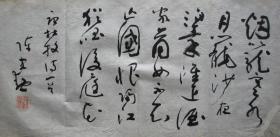 烟籠寒水
月籠沙夜
泊秦淮近酒
家商女不知
亡國恨隔江
猶唱後庭花
杜牧诗一首